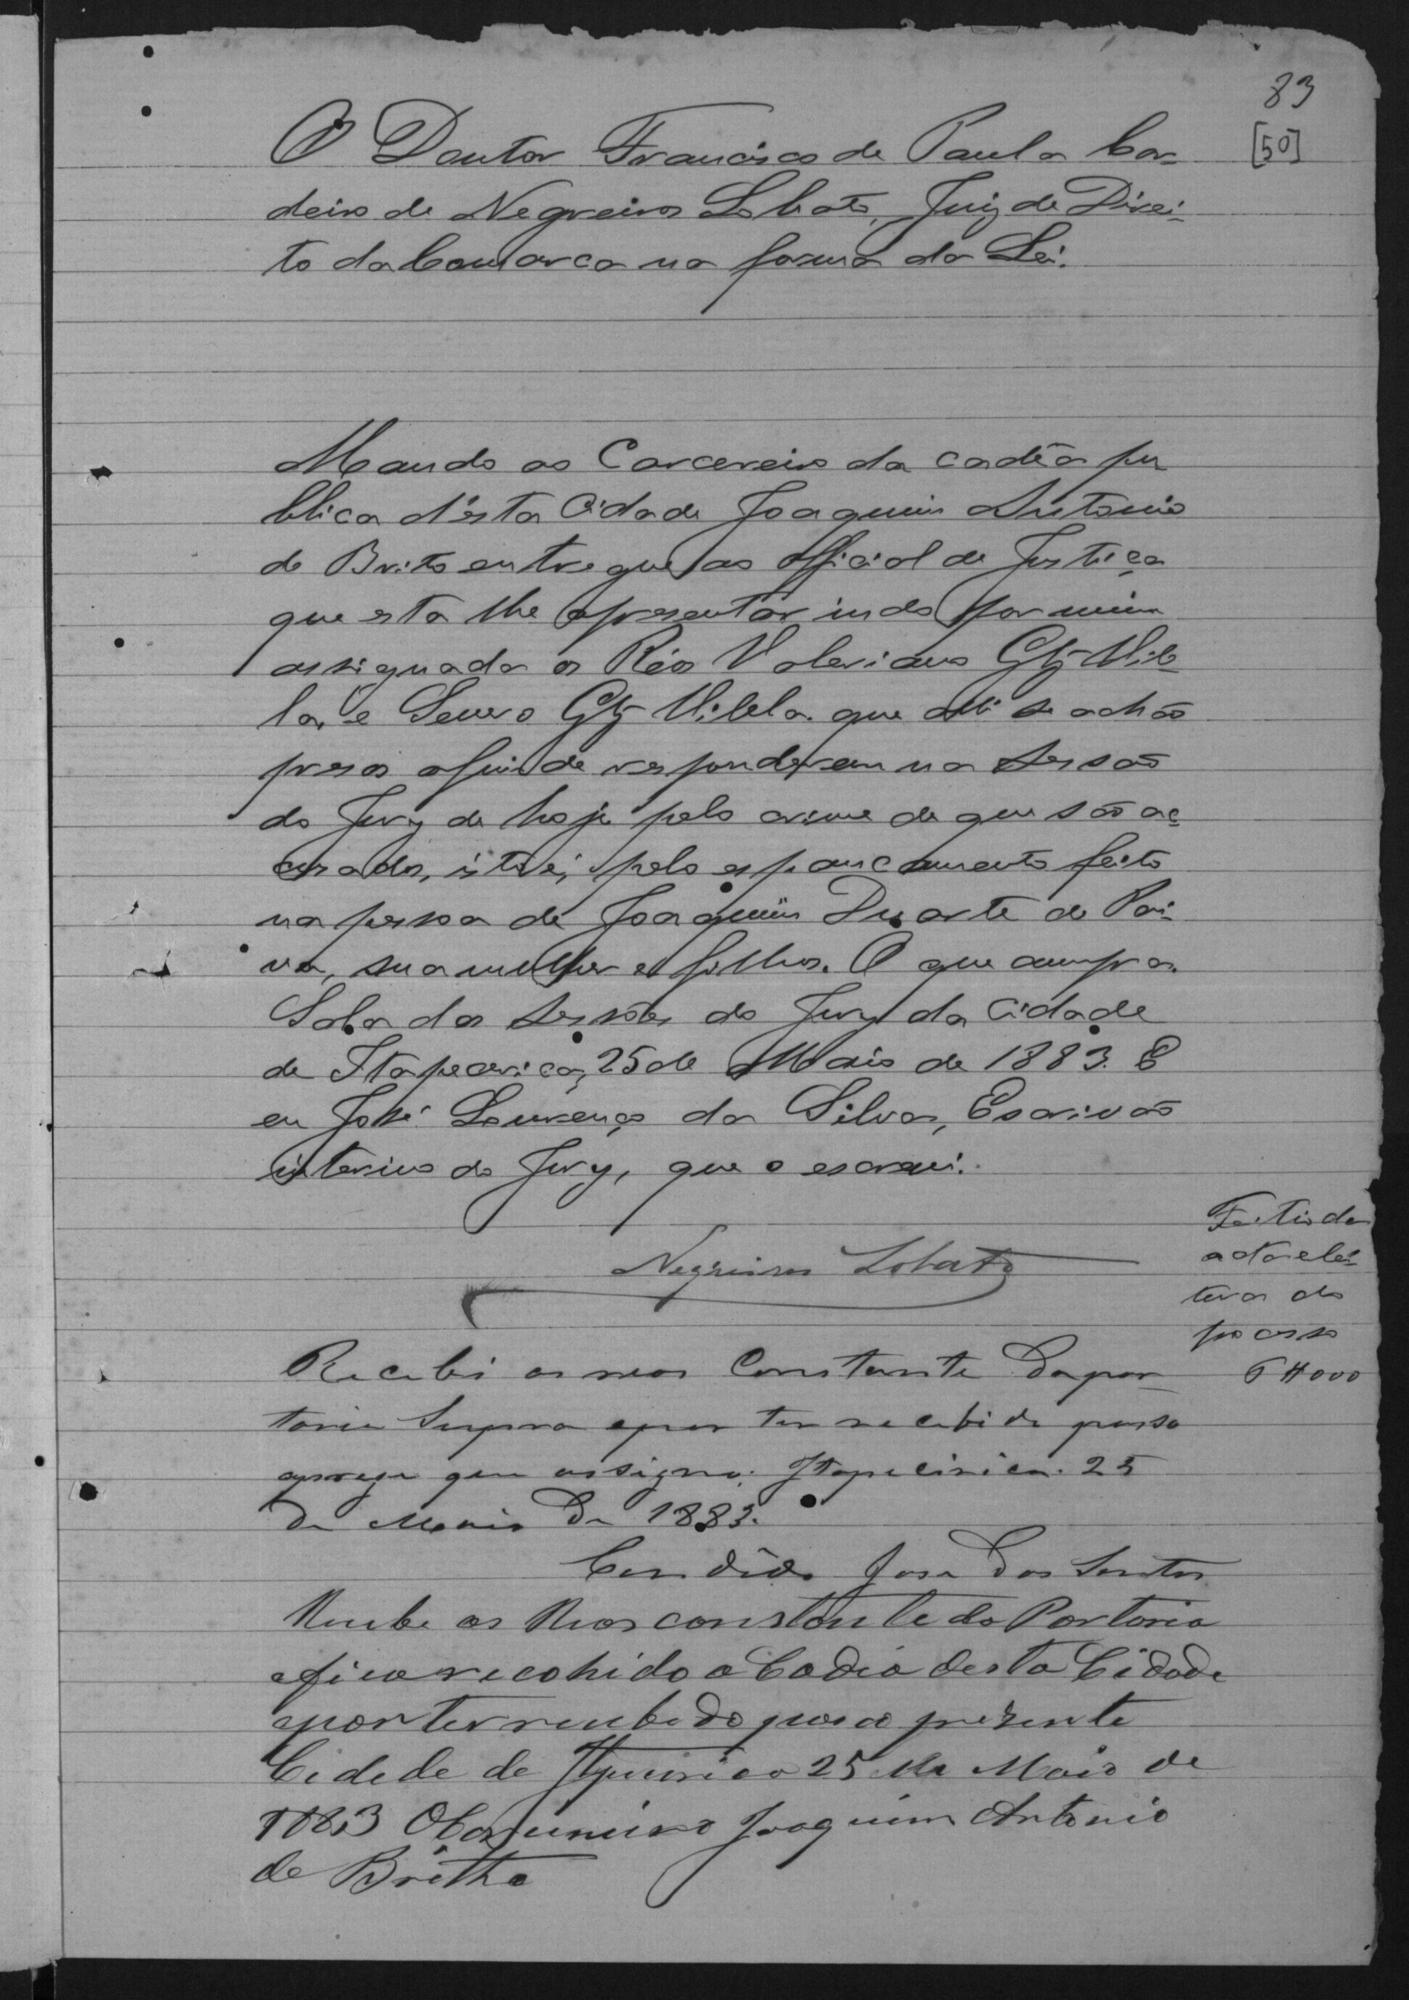 83
[50]
O Doutor Francisco de Paula Cor-
deiro de Negreiros Lobato, Juiz de Direi-
to da Comarca na forma da Lei.
Mando ao Carcereiro da cadêa pu
blica d'esta Cidade Joaquim Antonio
de Brito entregue ao official de Justiça
que esta lhe apresentar indo por mim
assignada os Réos Valeriano Glz Vile
la, e Severo Glz Vilela que alli se achão
presos afim de responderem na sessão
do Jury de hoje pelo crime de que são ac
cusados, isto é, pelo espancamento feito
na pessoa de Joaquim Duarte de Pai-
va, sua mulher e filhos. O que cumpra.
Sala das sessões do Jury da Cidade
de Itapecerica, 25 de Maio de 1883. E
eu José Lourenço da Silva, Escrivão
interino do Jury, que o escrevi.
Negreiros Lobato
Feitio da
acta e lei-
tura do
processo
6#000
Recebi os reos Constante da por-
taria Supra epor ter recebido passo
opresente que assigno. Itapecirica. 25
de Maio de 1883.
Candido Jose dos Santos
Recebe os Reos constante da Portaria
efica recohido a Cadia desta Cidade
epor ter recebedo paso o prezente
Cidede de Itapecirica 25 de Maio de
1883 O Carcereiro Joaquim Antonio
de Britto